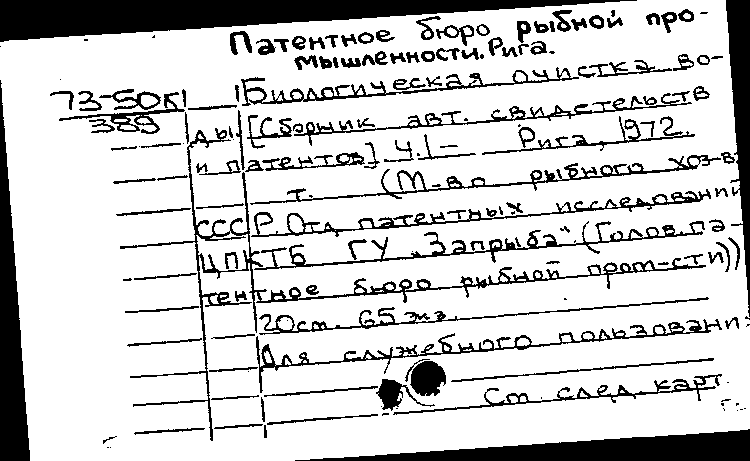 Патентное бюро рыбной про-
мышленности. Рига.
73-50к
389
Биологическая очистка во-
ды. [Сборник авт. свидетельств
и патентов] Ч.1- Рига, 1972.
т. (М-во рыбного хоз-ва
СССР. Отд патентных исследований
ЦПКТБ ГУ "Запрыба". (Голов. па-
тентное бюро рыбной пром-сти))
20см. 65 экз.
Для служебного пользовани
См след. карт.